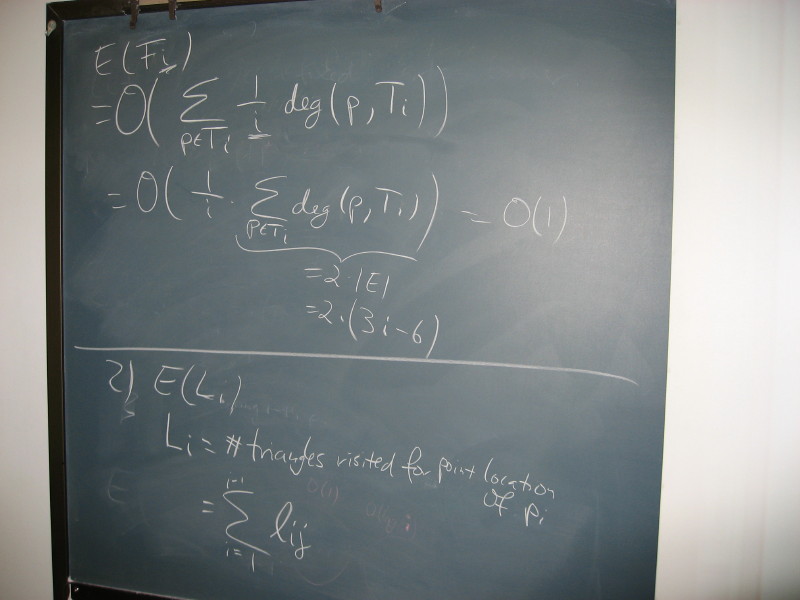 E(Fi)
= O( Σ p∈Ti 1/i deg(p, Ti))
= O( 1/i · Σ p∈Ti deg(p, Ti)) = O(1)
= 2·|E|
= 2·(3i-6)
2) E(Li)
Li = # triangles visited for point location
of pi
= Σ i=1 i-1 lij